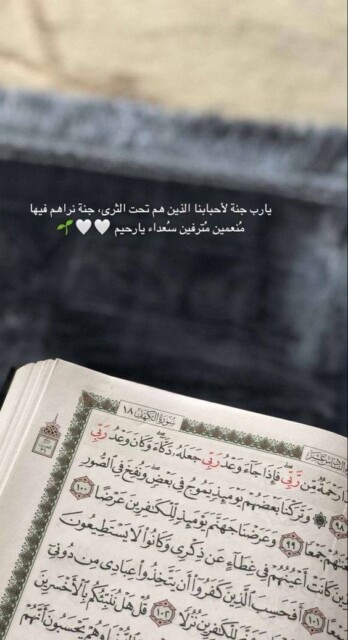 يارب جنة لأحبابنا الذين هم تحت الثرى، جنة نراهم فيها
مُنعمين مُترفين سُعداء يارحيم 🤍🤍🌱
سُورَةُ الكَهْفِ ١٨
رَحْمَةٌ مِّن رَّبِّي فَإِذَا جَاءَ وَعْدُ رَبِّي جَعَلَهُ دَكَّاءَ وَكَانَ وَعْدُ رَبِّي
۞ وَتَرَكْنَا بَعْضَهُمْ يَوْمَئِذٍ يَمُوجُ فِي بَعْضٍ وَنُفِخَ فِي الصُّورِ
جَمْعًا ٩٩ وَعَرَضْنَا جَهَنَّمَ يَوْمَئِذٍ لِّلْكَافِرِينَ عَرْضًا ١٠٠
كَانَتْ أَعْيُنُهُمْ فِي غِطَاءٍ عَن ذِكْرِي وَكَانُوا لَا يَسْتَطِيعُونَ
١٠١ أَفَحَسِبَ الَّذِينَ كَفَرُوا أَن يَتَّخِذُوا عِبَادِي مِن دُونِي
لِلْكَافِرِينَ نُزُلًا ١٠٢ قُلْ هَلْ نُنَبِّئُكُم بِالْأَخْسَرِينَ
وَهُمْ يَحْسَبُونَ أَنَّهُمْ